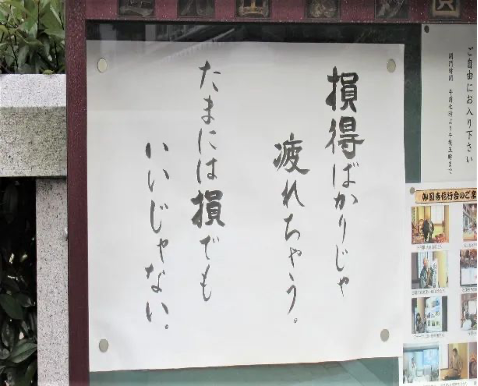 損得ばかりじゃ
疲れちゃう。
たまには損でも
いいじゃない。
ご自由にお入り下さい